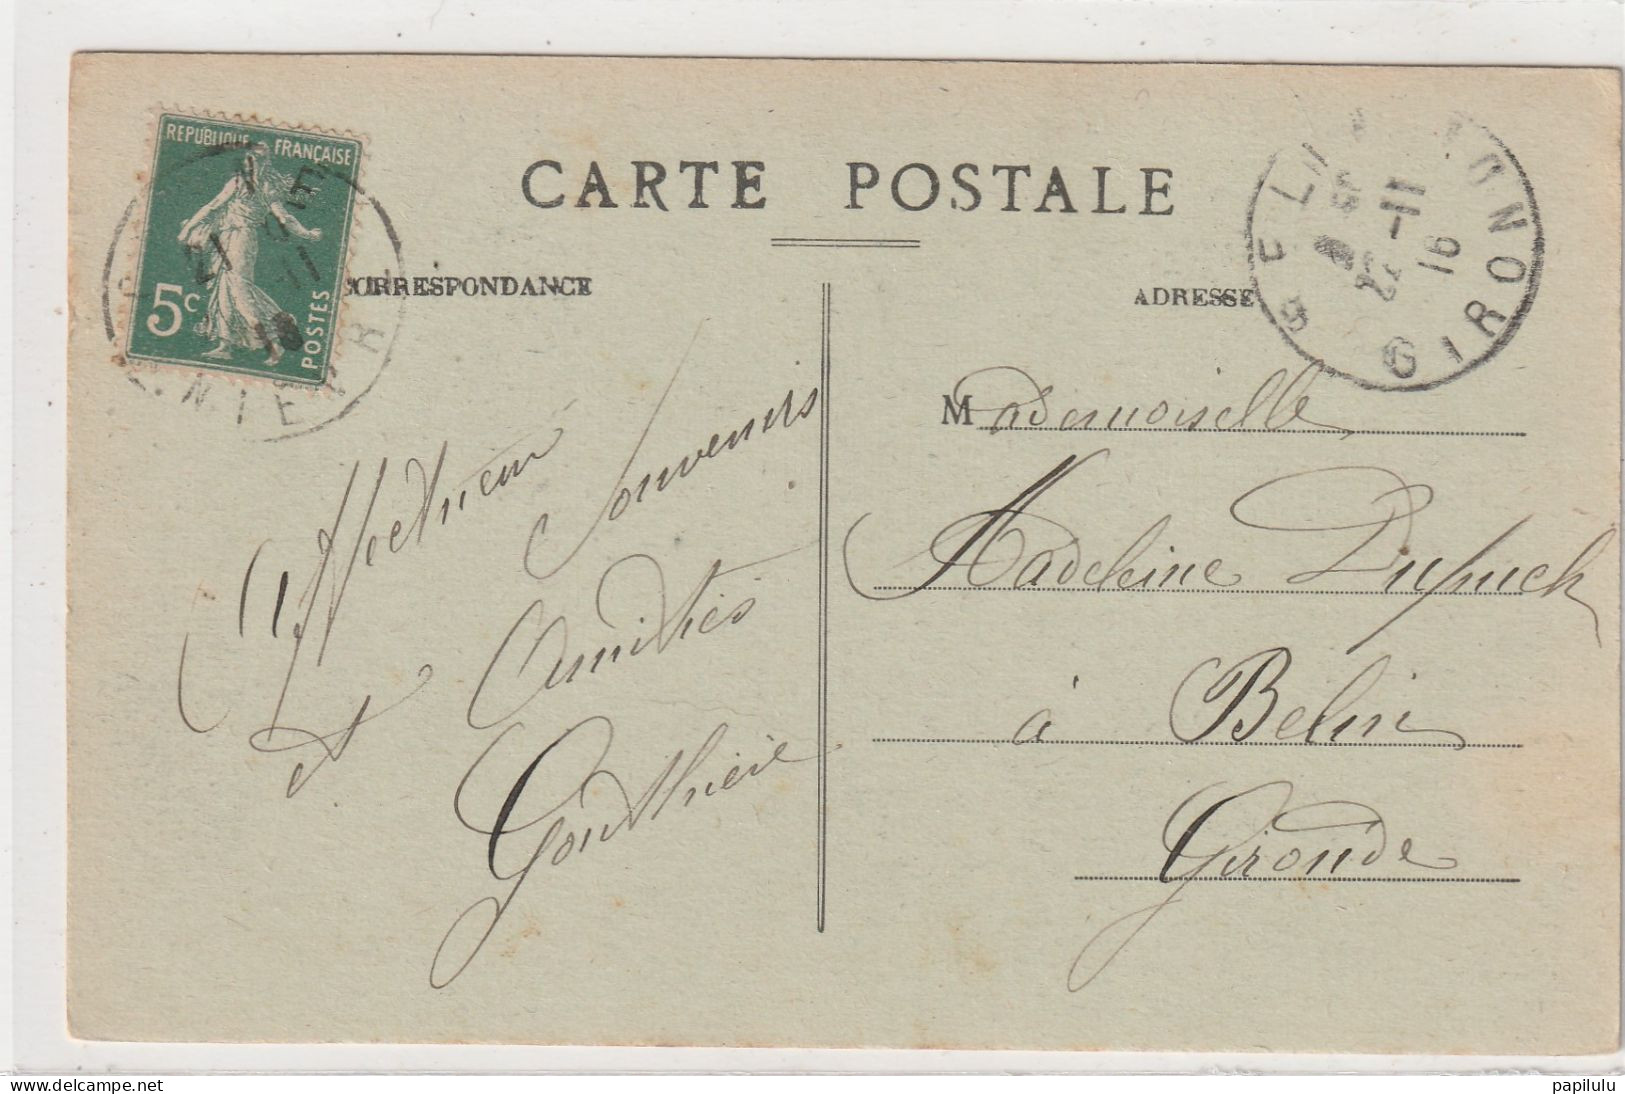 CARTE POSTALE
CORRESPONDANCE
ADRESSE
REPUBLIQUE FRANÇAISE
5c
POSTES
21
11
16
BELIN
22-11
16
GIRONDE
Affectueux Souvenirs
et Amitiés
Gouthière
Mademoiselle
Madeleine Dupuch
à Belin
Gironde
papilulu